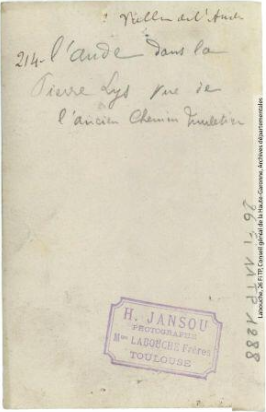 Vallée de l'Aude
214 - l'aude dans la
Pierre Lys vue de
l'ancien Chemin Muletier
26 Fi 1ATP 1288
H. JANSOU
PHOTOGRAPHE
Mon LABOUCHE Frères
TOULOUSE
Labouche, 26 FI TP, Conseil général de la Haute-Garonne, Archives départementales